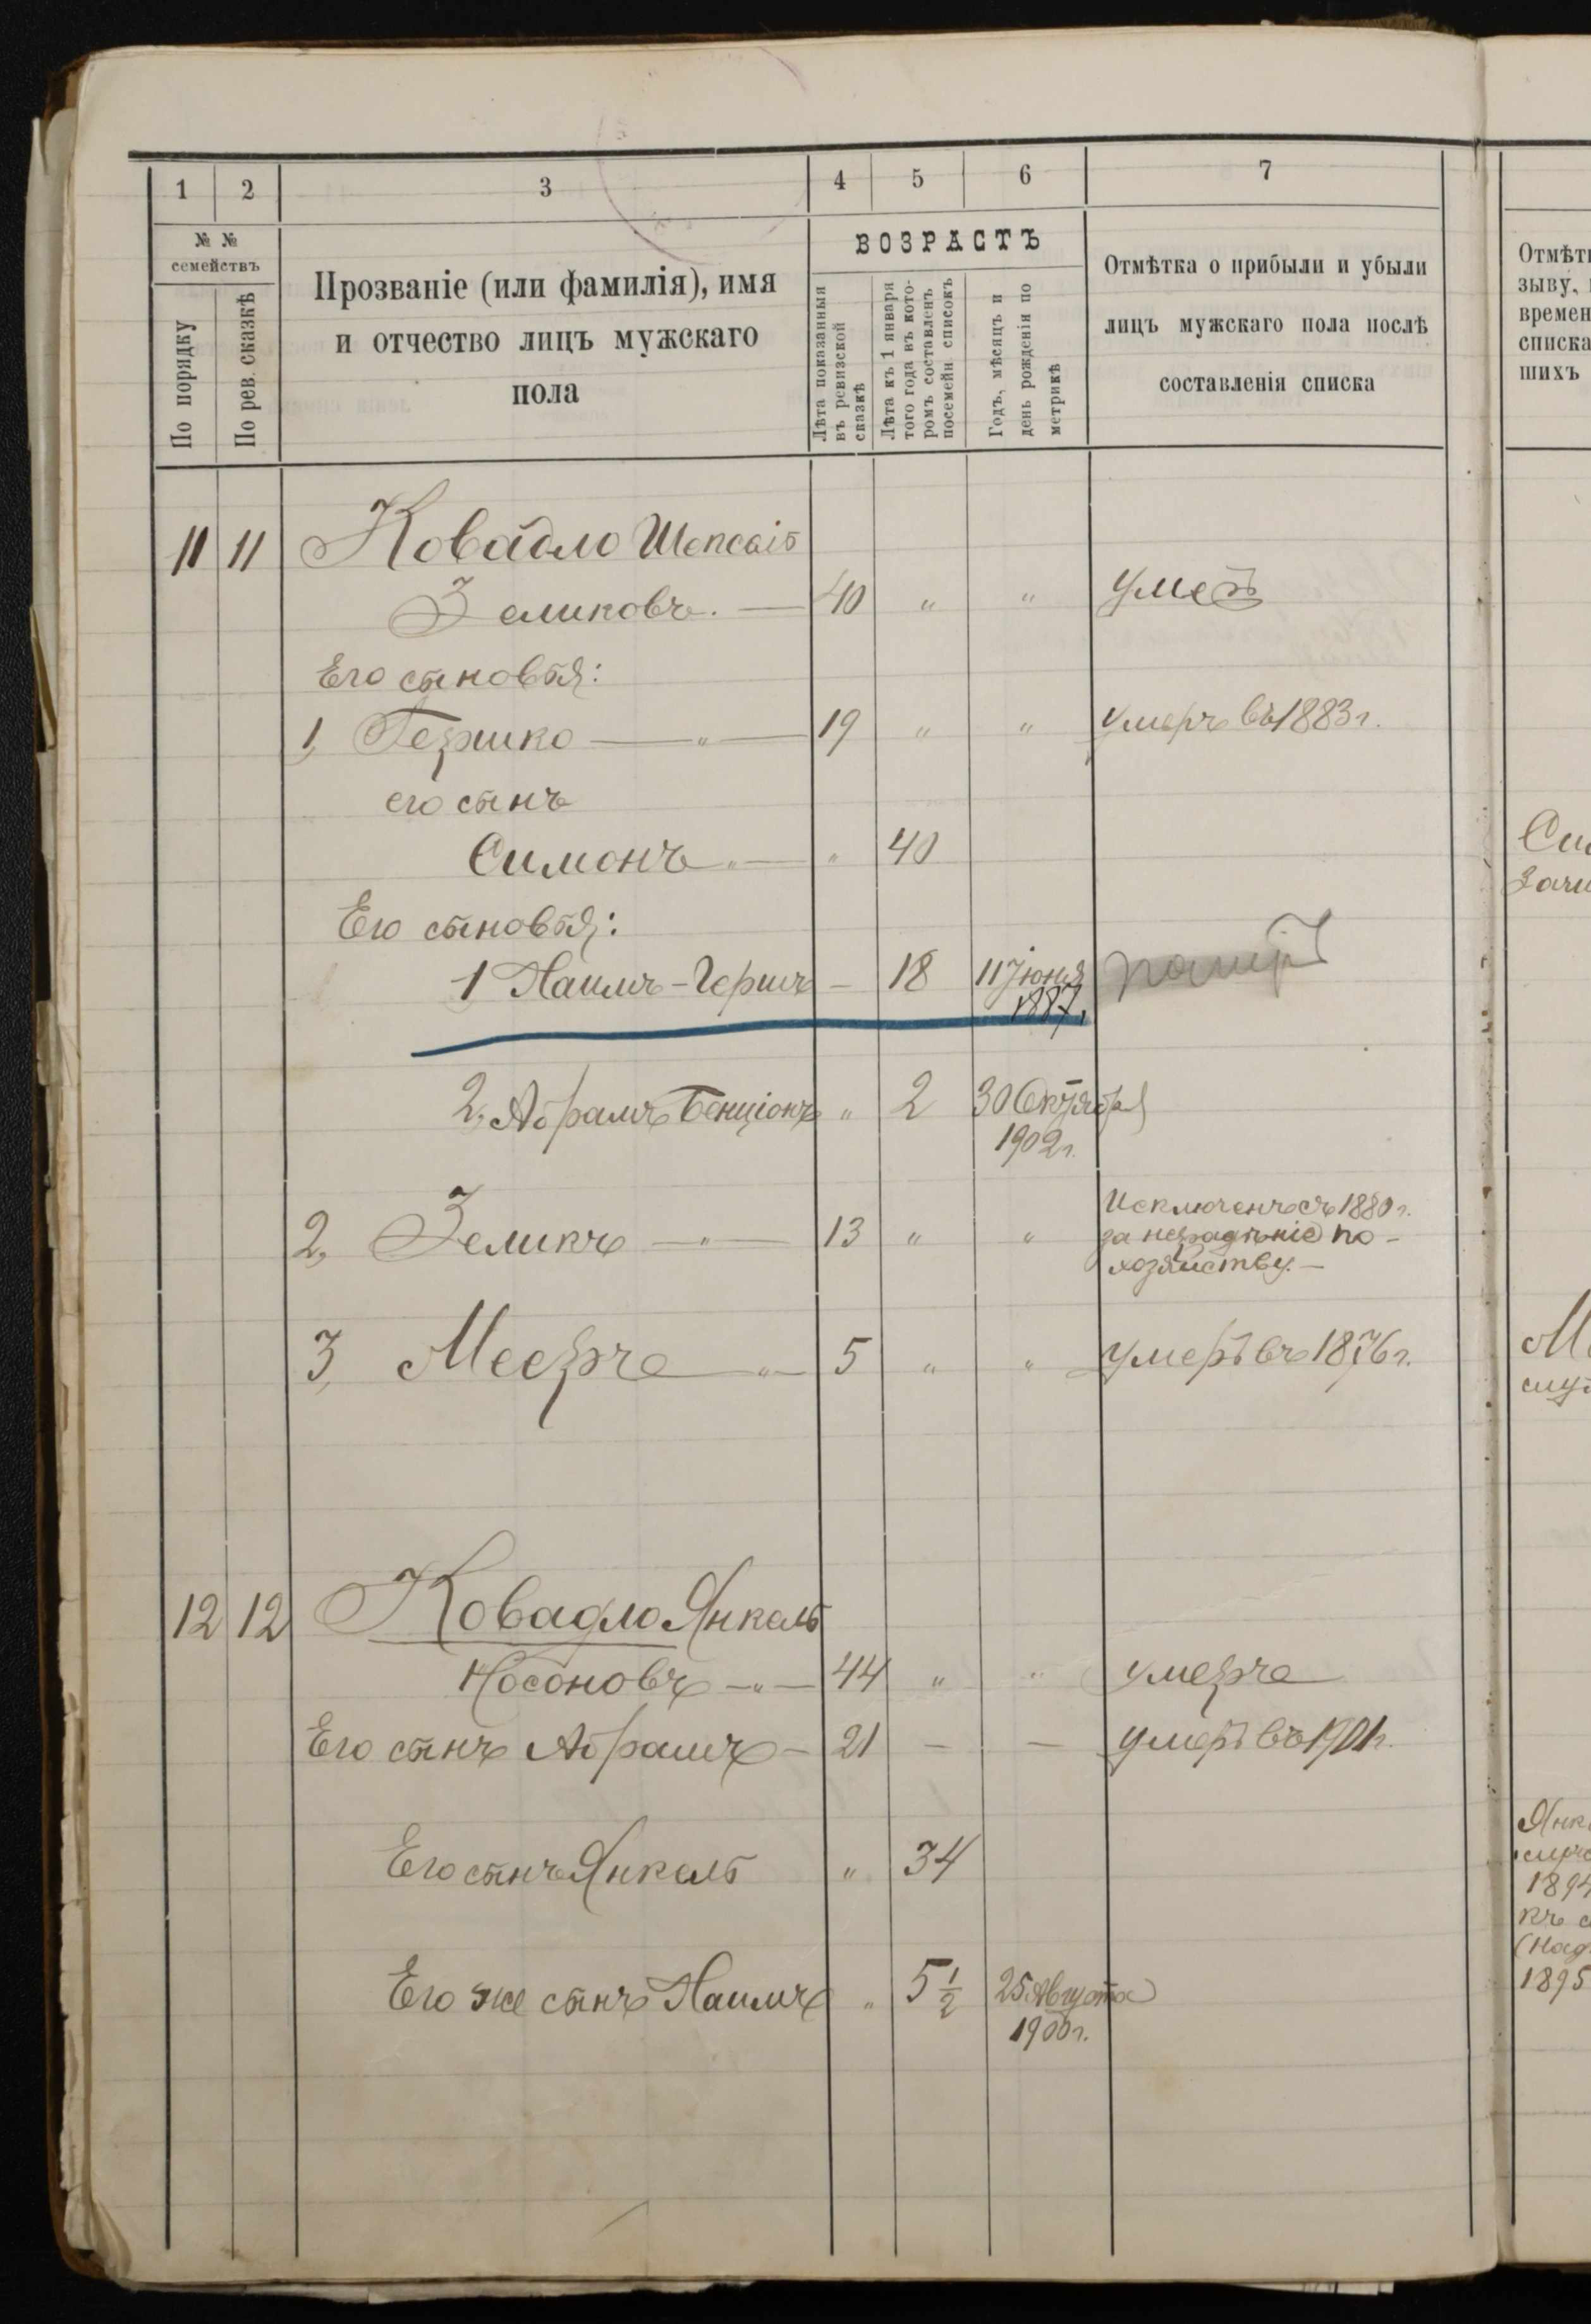 1 2 3 4 5 6 7
№ № семействъ
По порядку
По рев. сказкѣ
Прозваніе (или фамилія), имя
и отчество лицъ мужскаго
пола
ВОЗРАСТЪ
Лѣта показанныя
въ ревизской
сказкѣ
Лѣта къ 1 января
того года въ кото-
ромъ составленъ
посемейн списокъ
Годъ, мѣсяцъ и
день рожденія по
метрикѣ
Отмѣтка о прибыли и убыли
лицъ мужскаго пола послѣ
составленія списка
11 11 Ковадло Шепсель
Зеликовъ. — 40 " "
Его сыновья:
1, Гершко — " — 19 " " умеръ въ 1883 г.
его сынъ
Симонъ " — " 40
Его сыновья:
1 Наимъ-Гершъ — 18 11 Іюня
1887,
2, Абрамъ Бенціонъ " 2 30 Октября
1902 г.
2, Зеликъ — " — 13 " " Исключенъ съ 1880 г.
за нерадѣніе по-
хозяйству. —
3, Мееръ " — 5 " " умеръ въ 1876 г.
12 12 Ковадло Янкель
Носоновъ — " — 44 " " умеръ
Его сынъ Абрамъ — 21 — — умеръ въ 1901 г.
Его сынъ Янкель " 34
Его же сынъ Наимъ " 5 1/2 25 Августа
1900 г.
Отмѣтк
зыву,
времен
списка
шихъ
1894
къ
1895